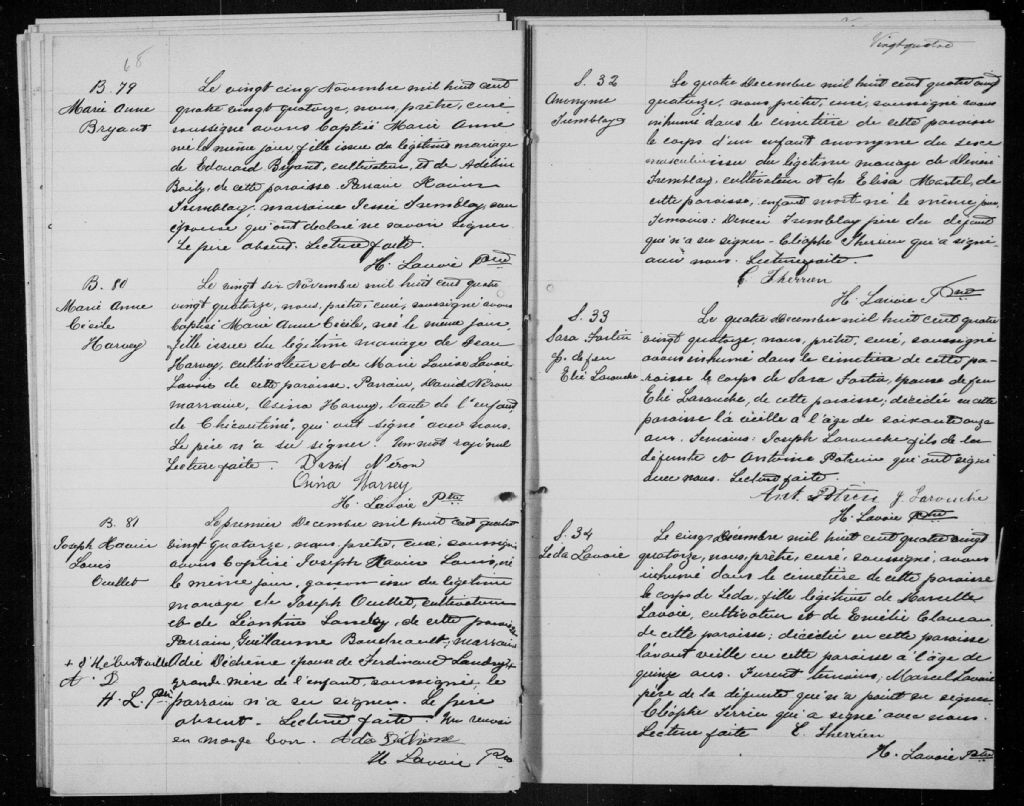 68
B. 79
Marie Anne
Bryant
Le vingt cinq Novembre mil huit cent
quatre vingt quatorze, nous, prêtre, curé
soussigné avons baptisé Marie Anne
né le même jour, fille issue de légitime mariage
de Edouard Bryant, cultivateur, et de Adeline
Baily, de cette paroisse. Parrain Xavier
Tremblay, marraine Jessie Tremblay, son
épouse qui ont declaré ne savoir signer.
Le père absent. Lecture faite.
H. Lavoie Ptre
B. 80
Marie Anne
Cécile
Harvey
Le vingt six Novembre mil huit cent quatre
vingt quatorze, nous, prêtre, curé, soussigné avons
baptisé Marie Anne Cécile, née le même jour
fille issue du légitime mariage de Jean
Harvey, cultivateur et de Marie Louise Lavoie
de cette paroisse. Parrain, David Néron
marraine, Osina Harvey, tante de l'enfant
de Chicoutimi, qui ont signé avec nous.
Le père n'a su signer. Un mot rayé nul
Lecture faite. David Néron
Osina Harvey
H. Lavoie Ptre
B. 81
Joseph Xavier
Louis
Ouellet
Le premier Decembre mil huit cent quatre
vingt quatorze, nous, prêtre, curé, soussigné
avons baptisé Joseph Xavier Louis, né
le même jour, garçon issu du légitime
mariage de Joseph Ouellet, cultivateur
et de Léontine Landry, de cette paroisse
Parrain, Guillaume Bouchard, marraine
Adée Déchêne épouse de Ferdinand Landry +
grande mère de l'enfant, soussignée, le
parrain n'a su signer. Le père
absent. Lecture faite. Un renvoi
en marge bon. Ada Déchêne
H Lavoie Ptre
+ d'Hébertville
A. D
H. L. Ptre
Vingt quatre
S. 32
Anonyme
Tremblay
Le quatre Decembre mil huit cent quatre vingt
quatorze, nous prêtre, curé, soussigné avons
inhumé dans le cimetière de cette paroisse
le corps d'un enfant anonyme du sexe
masculin issu du légitime mariage de Dénéri
Tremblay, cultivateur et de Elisa Martel, de
cette paroisse, enfant mort né le même jour.
Temoins: Déneri Tremblay père du défunt
qui n'a su signer - Cléophe Therrien qui a signé
avec nous. Lecture faite.
C Therrien
H. Lavoie Ptre
S. 33
Sara Fortin
Ep. de feu
Elie Larouche
Le quatre Decembre mil huit cent quatre
vingt quatorze, nous, prêtre, curé, soussigné
avons inhumé dans le cimetière de cette pa-
roisse le corps de Sara Fortin, épouse de feu
Elie Larouche, de cette paroisse; décédée en cette
paroisse la veille à l'âge de soixante onze
ans. Temoins: Joseph Larouche fils de la
défunte et Antoine Potvin qui ont signé
avec nous. Lecture faite.
Ant. Potvin J. Larouche
H. Lavoie Ptre
S. 34
Leda Lavoie
Le cinq Décembre mil huit cent quatre vingt
quatorze, nous, prêtre, curé, soussigné, avons
inhumé dans le cimetière de cette paroisse
le corps de Leda, fille légitime de Marcelle
Lavoie, cultivateur et de Emélie Claveau
de cette paroisse; décédée en cette paroisse
l'avant veille en cette paroisse à l'âge de
quinze ans. Furent temoins, Marcel Lavoie
père de la défunte qui n'a point su signer
Cléophe Terrien qui a signé avec nous.
Lecture faite C. Therrien
H. Lavoie Ptre